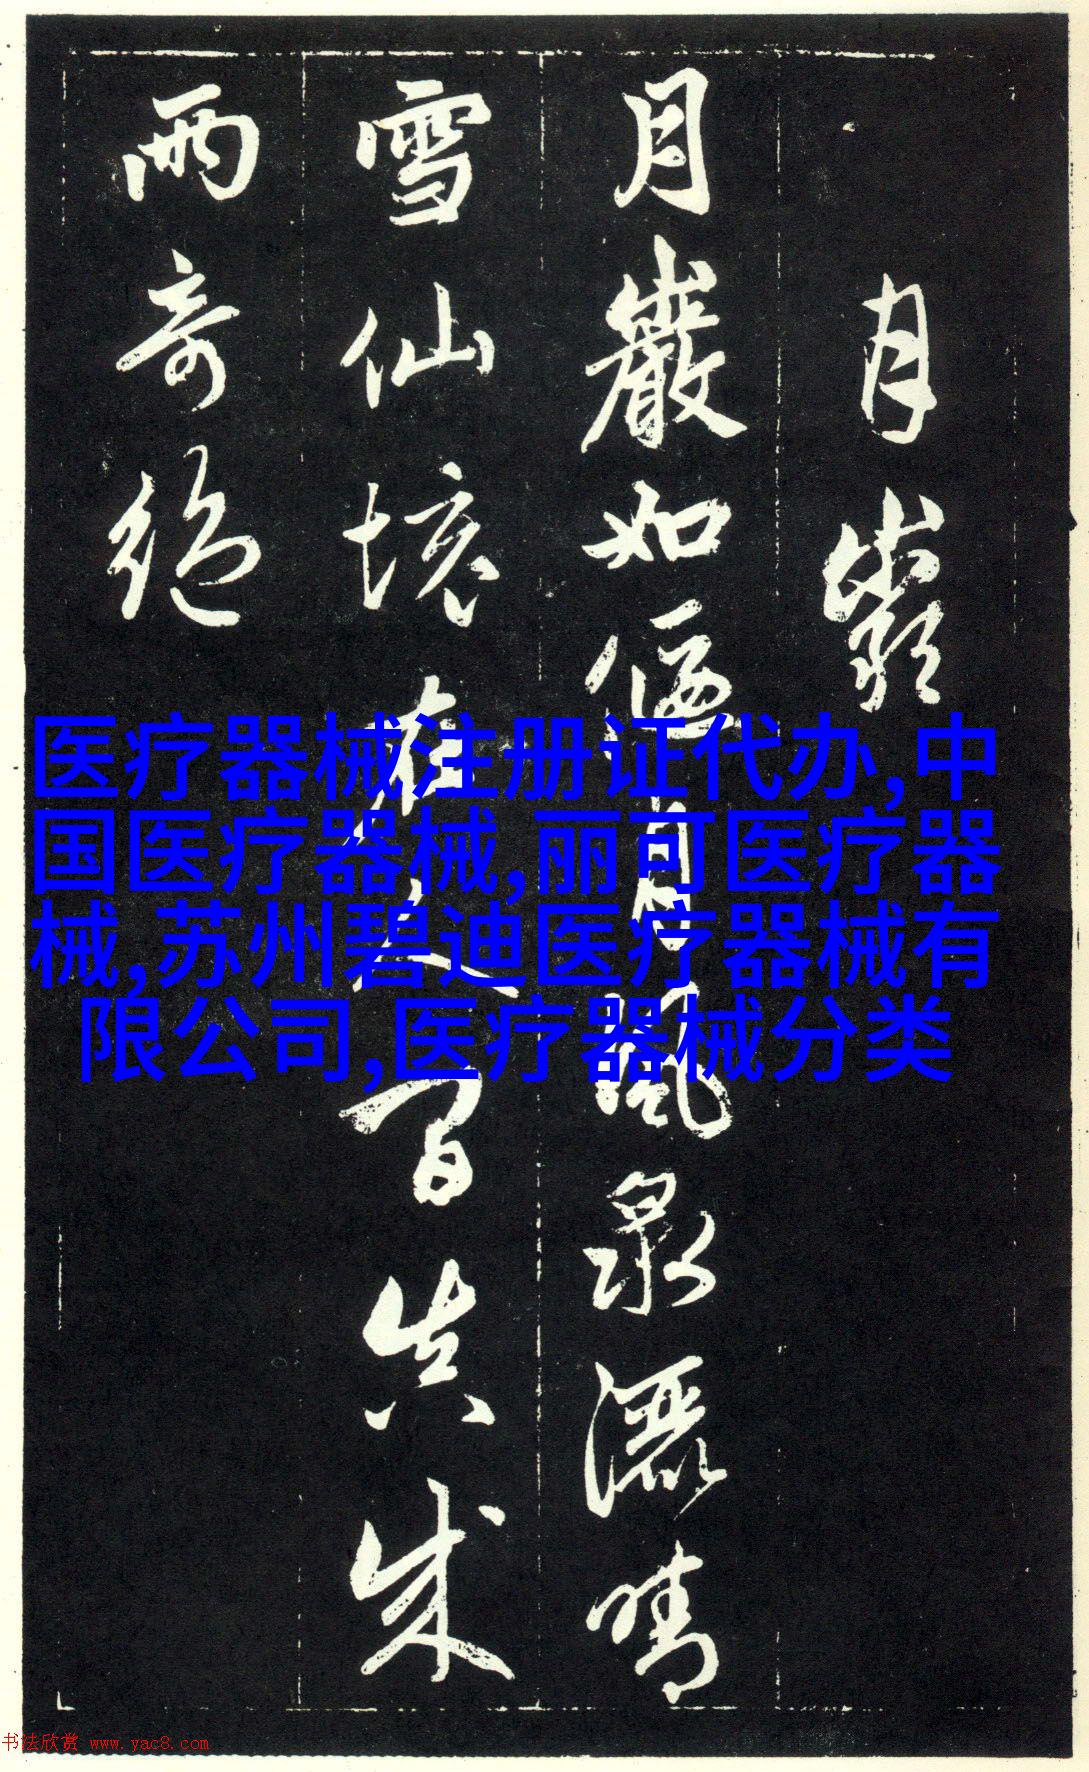 月巖
月巖如偃月風泉灑晴
雪仙境在人間真成
兩奇絕
医疗器械注册证代办,中
国医疗器械,丽可医疗器
械,苏州碧迪医疗器械有
限公司,医疗器械分类
书法欣赏 www.yac8.com